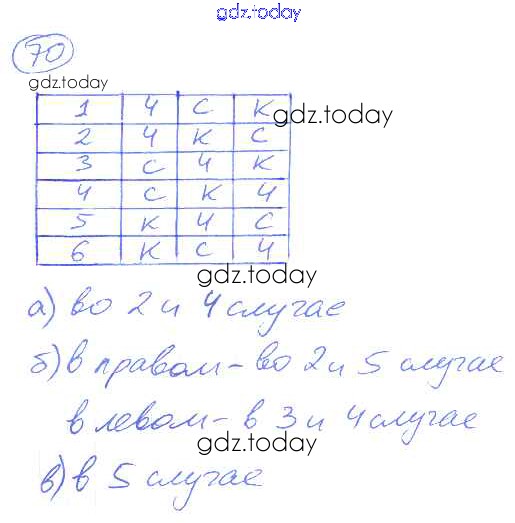 gdz.today
70
gdz.today
1 Ч С К
gdz.today
2 Ч К С
3 С Ч К
4 С К Ч
5 К Ч С
6 К С Ч
gdz.today
а) во 2 и 4 случае
б) в правом - во 2 и 5 случае
gdz.today
в левом - в 3 и 4 случае
gdz.today
в) в 5 случае
gdz.today